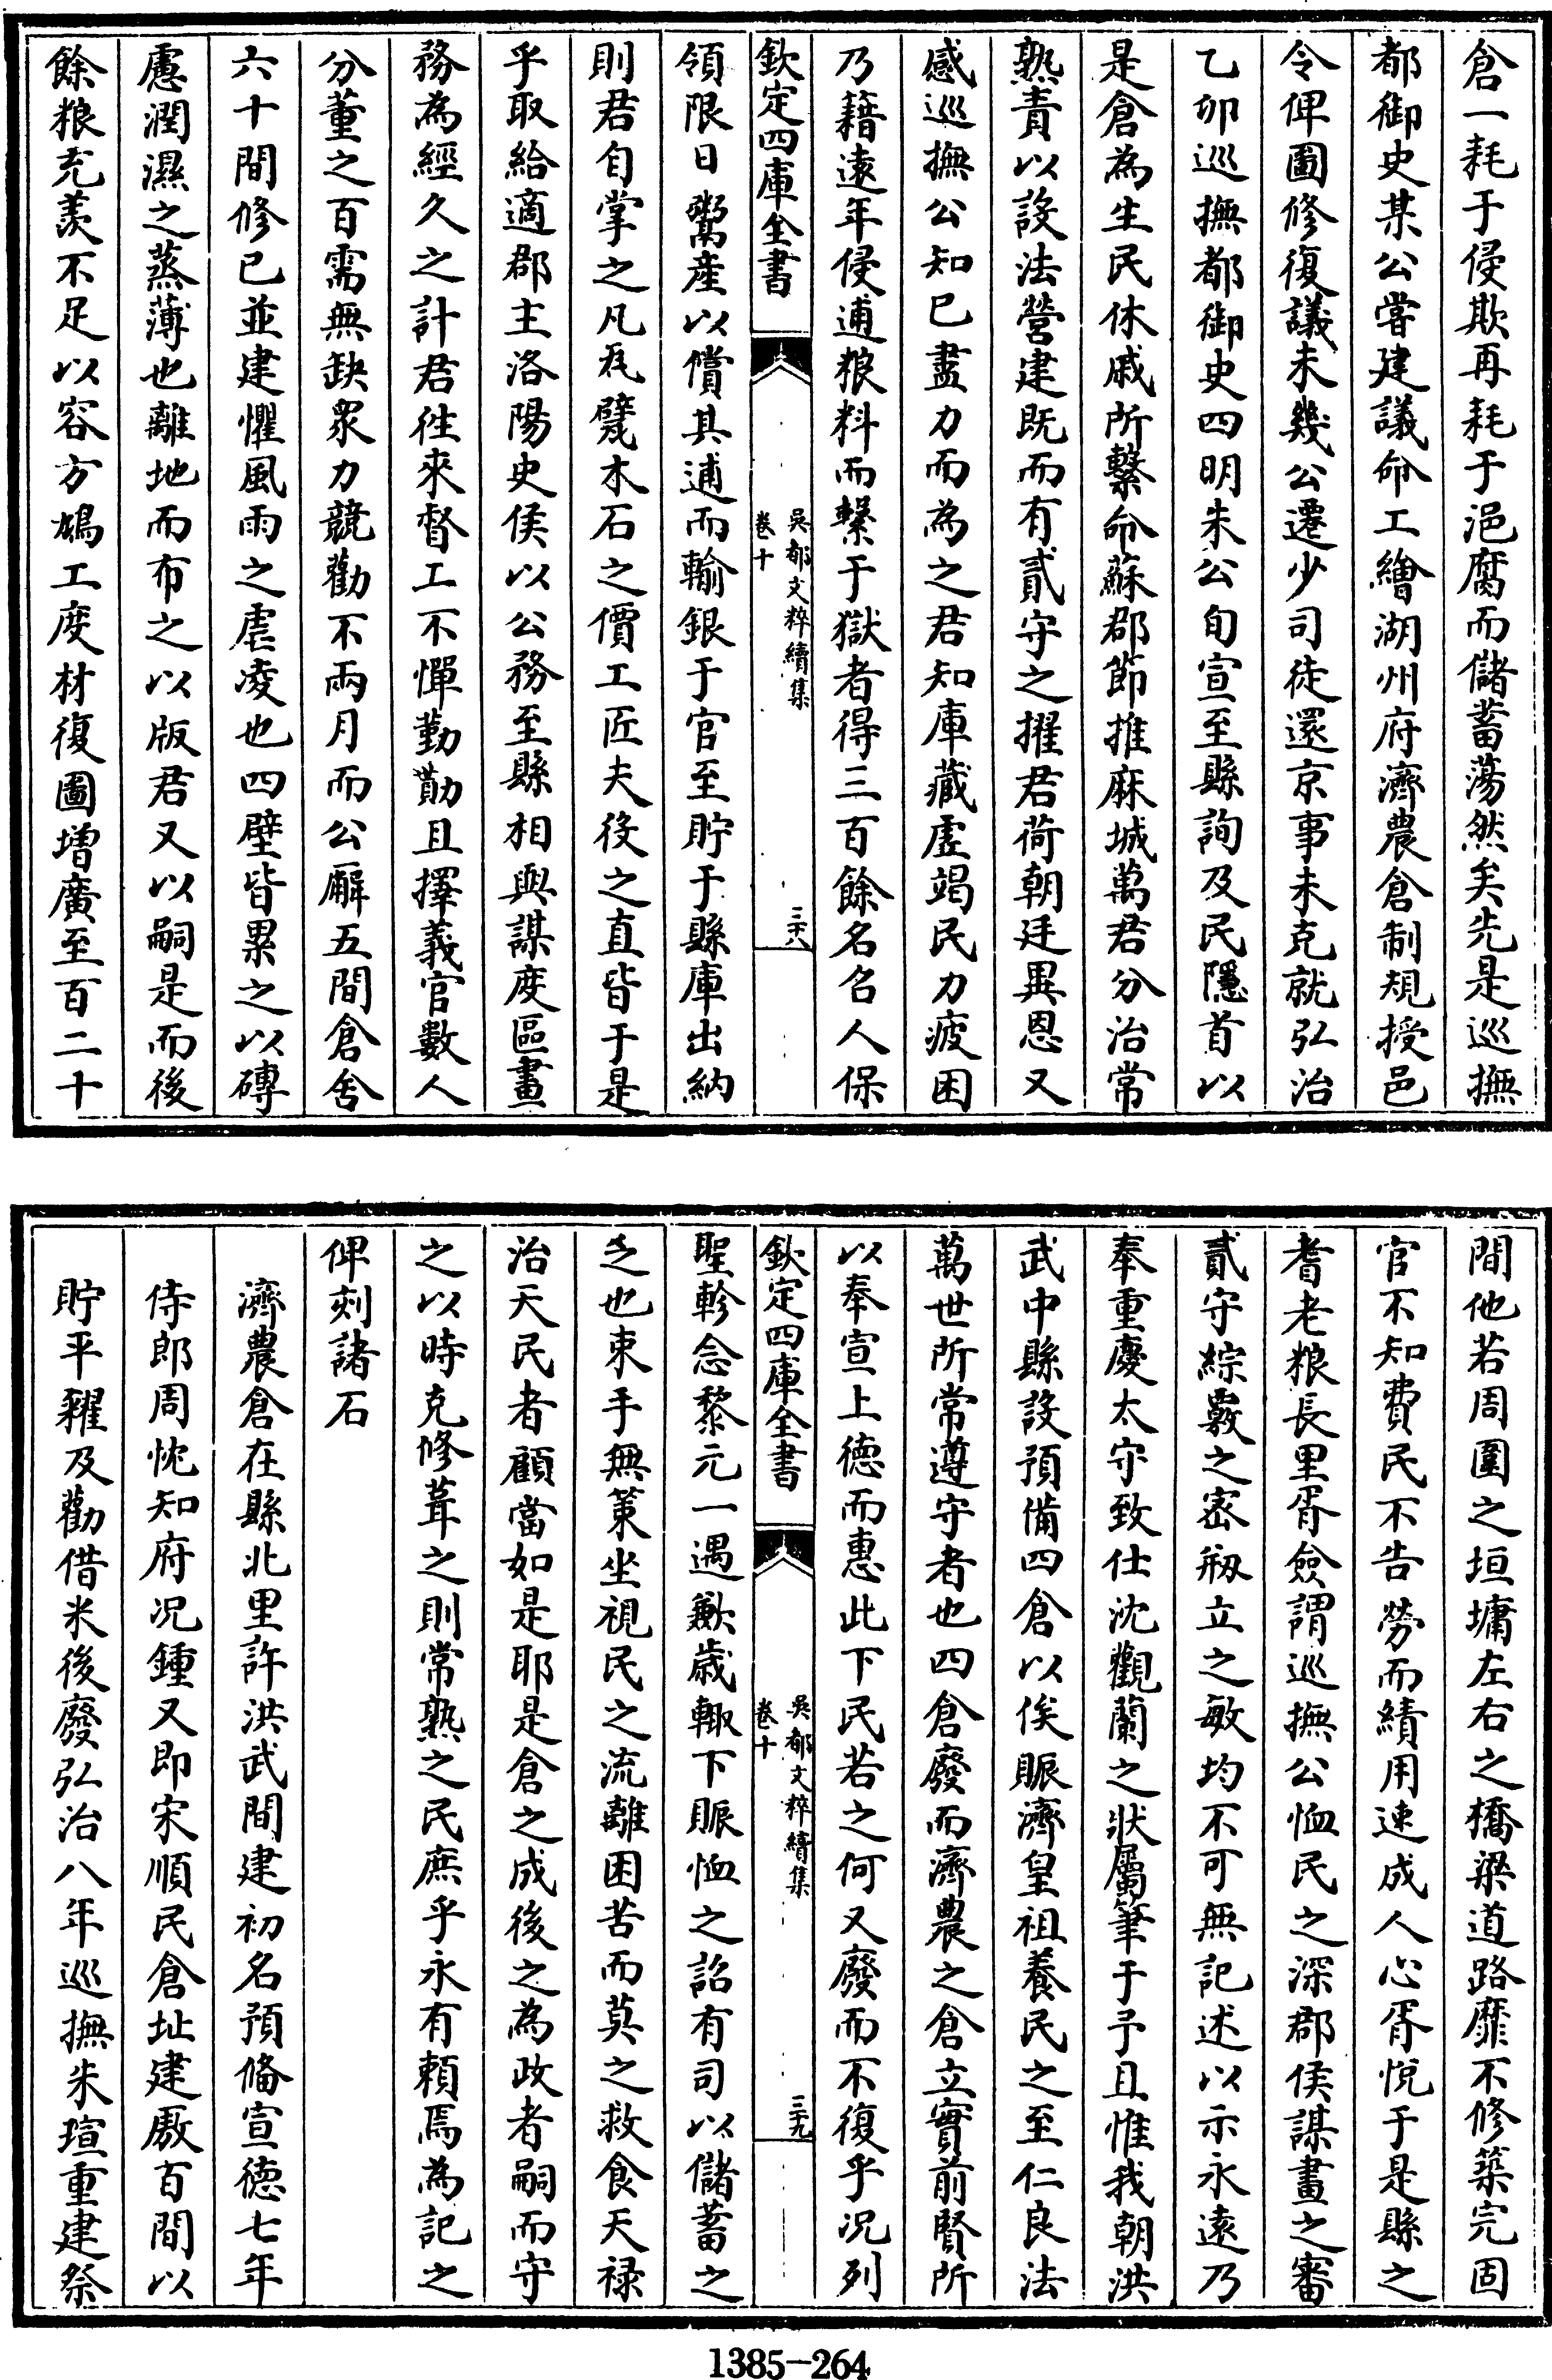 倉一耗于侵欺再耗于浥腐而儲蓄蕩然矣先是巡撫
都御史某公嘗建議命工繪湖州府濟農倉制規授邑
令俾圖修復議未幾公遷少司徒還京事未克就弘治
乙卯巡撫都御史四明朱公旬宣至縣詢及民隱首以
是倉為生民休戚所繫命蘇郡節推麻城萬君分治常
熟責以設法營建既而有貳守之擢君荷朝廷異恩又
感巡撫公知已盡力而為之君知庫藏虛竭民力疲困
乃籍遠年侵逋粮料而繫于獄者得三百餘名召人保
欽定四庫全書
吳都文粹續集
卷十
三十八
領限日鬻產以償其逋而輸銀于官至貯于縣庫出納
則君自掌之凡瓦甓木石之價工匠夫役之直皆于是
乎取給適郡主洛陽史侯以公務至縣相與謀度區畫
務為經久之計君徃來督工不憚勤勩且擇義官數人
分董之百需無缺衆力競勸不兩月而公廨五間倉舍
六十間修已並建懼風雨之虐凌也四壁皆累之以磚
慮潤濕之蒸薄也離地而布之以版君又以嗣是而後
餘粮充羡不足以容方鳩工度材復圖增廣至百二十
間他若周圍之垣墉左右之橋梁道路靡不修築完固
官不知費民不告勞而績用速成人心胥悅于是縣之
耆老粮長里胥僉謂巡撫公恤民之深郡侯謀畫之審
貳守綜覈之宻剏立之敏均不可無記述以示永遠乃
奉重慶太守致仕沈觀蘭之狀屬筆于予且惟我朝洪
武中縣設預備四倉以俟賑濟皇祖養民之至仁良法
萬世所常遵守者也四倉廢而濟農之倉立實前賢所
以奉宣上德而惠此下民若之何又廢而不復乎况列
欽定四庫全書
吳都文粹續集
卷十
三十九
聖軫念黎元一遇歉歲輒下賑恤之詔有司以儲蓄之
乏也束手無策坐視民之流離困苦而莫之救食天禄
治天民者顧當如是耶是倉之成後之為政者嗣而守
之以時克修葺之則常熟之民庶乎永有賴焉為記之
俾刻諸石
濟農倉在縣北里許洪武間建初名預備宣德七年
侍郎周忱知府况鍾又即宋順民倉址建廒百間以
貯平糴及勸借米後廢弘治八年巡撫朱瑄重建祭
1385-264